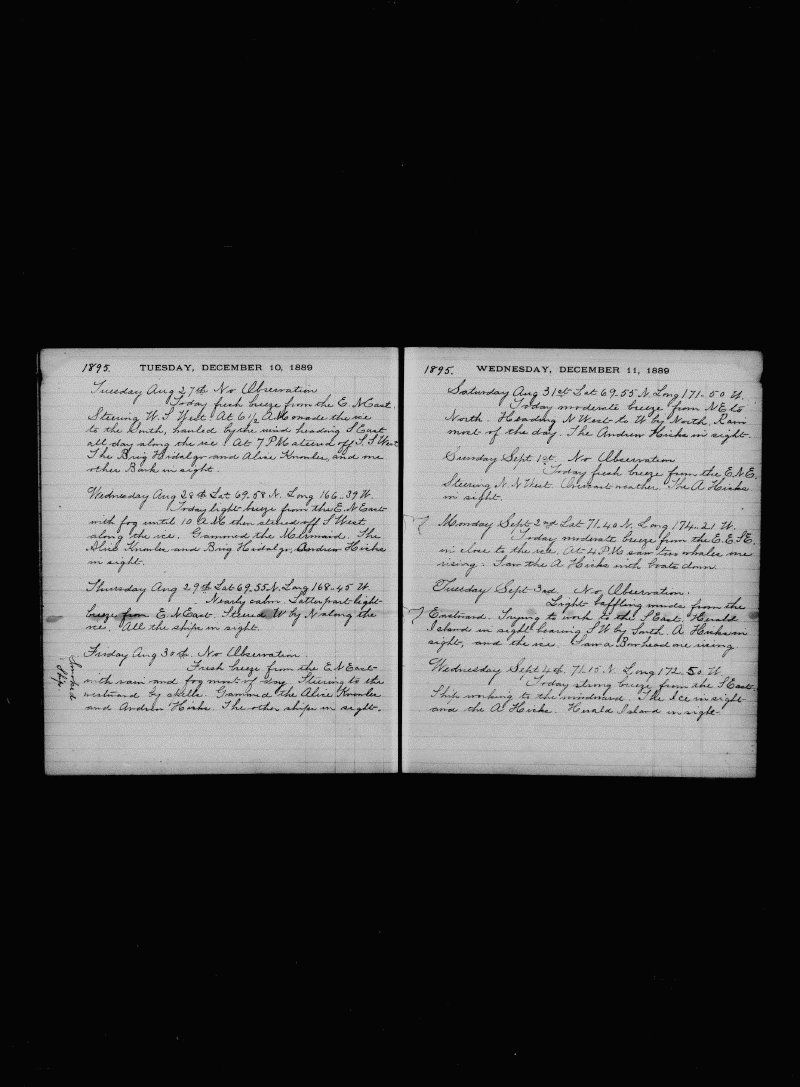 1895. TUESDAY, DECEMBER 10, 1889
Tuesday Aug 27th No Observation
Today fresh breeze from the E. N East.
Steering W. S West. At 6 1/2 AM made the ice
to the South, hauled by the wind heading S East
all day along the ice. At 7 PM steered off S. S West
The Brig Hidalgo and Alice Knowles, and one
other Bark in sight.
Wednesday Aug 28th Lat 69.58 N. Long 166-39 W.
Today light breeze from the E. N East
with fog until 10 AM then steered off S West
along the ice. Gammed the Mermaid. The
Alice Knowles and Brig Hidalgo, Andrew Hicks
in sight.
Thursday Aug 29th Lat 69.55 N. Long 168-45 W.
Nearly calm. Latter part light
breeze from E. N East. Steered W by N along the
ice. All the ships in sight.
Friday Aug 30th. No Observation.
Fresh breeze from the E N East
with rain and fog most of day Steering to the
westward by spells. Gammed the Alice Knowles
and Andrew Hicks. The other ships in sight.
Smoked
Ship
1895. WEDNESDAY, DECEMBER 11, 1889
Saturday Aug 31st Lat 69-55 N. Long 171-50 W.
Today moderate breeze from NE to
North. Heading N West to W by North. Rain
most of the day. The Andrew Hicks in sight.
Sunday Sept 1st. No Observation
Today fresh breeze from the E.N.E.
Steering N. N West. Overcast weather. The A Hicks
in sight.
Monday Sept 2nd Lat 71.40 N. Long 174-21 W.
Today moderate breeze from the E. E. SE.
in close to the ice. At 4 PM saw two whales one
rising. Saw the A Hicks with boats down.
Tuesday Sept 3rd. No Observation.
Light baffling winds from the
Eastward. Trying to work to the S East. Herald
Island in sight bearing SW by South. A Hicks in
sight, and the ice. Saw a Bowhead one rising
Wednesday Sept 4th. 71.15 N. Long 172.50 W.
Today strong breeze from the S East.
Ship working to the windward. The Ice in sight
and the A. Hicks. Herald Island in sight-